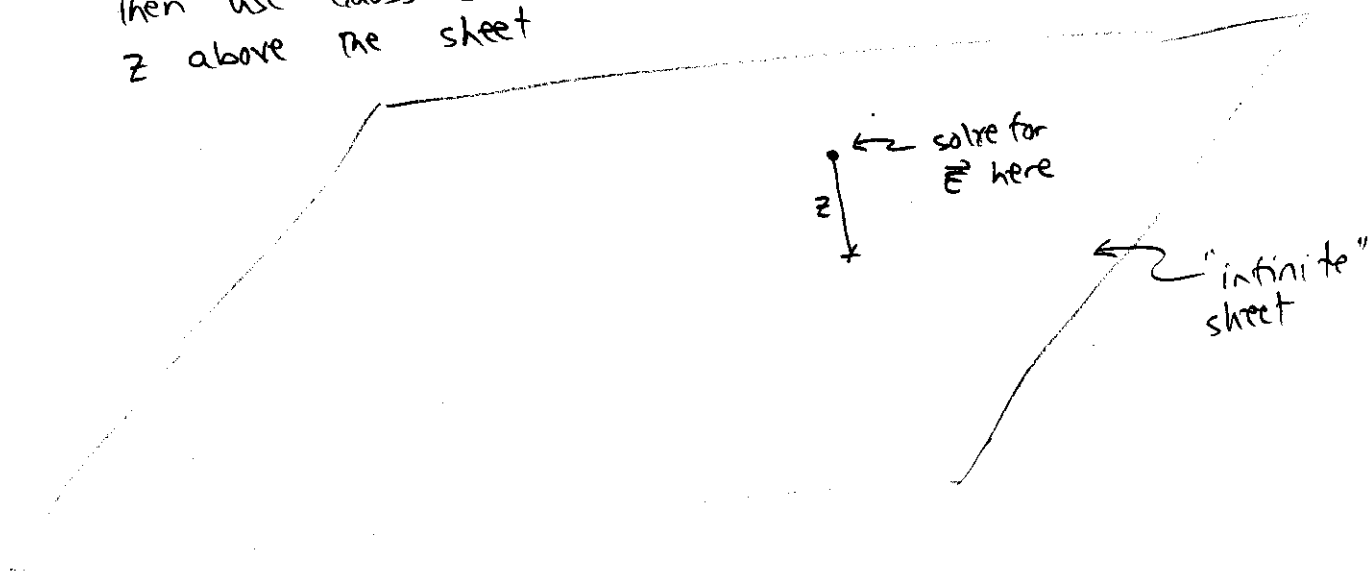 Then use
z above the sheet
solve for
E⃗ here
z
"infinite"
sheet